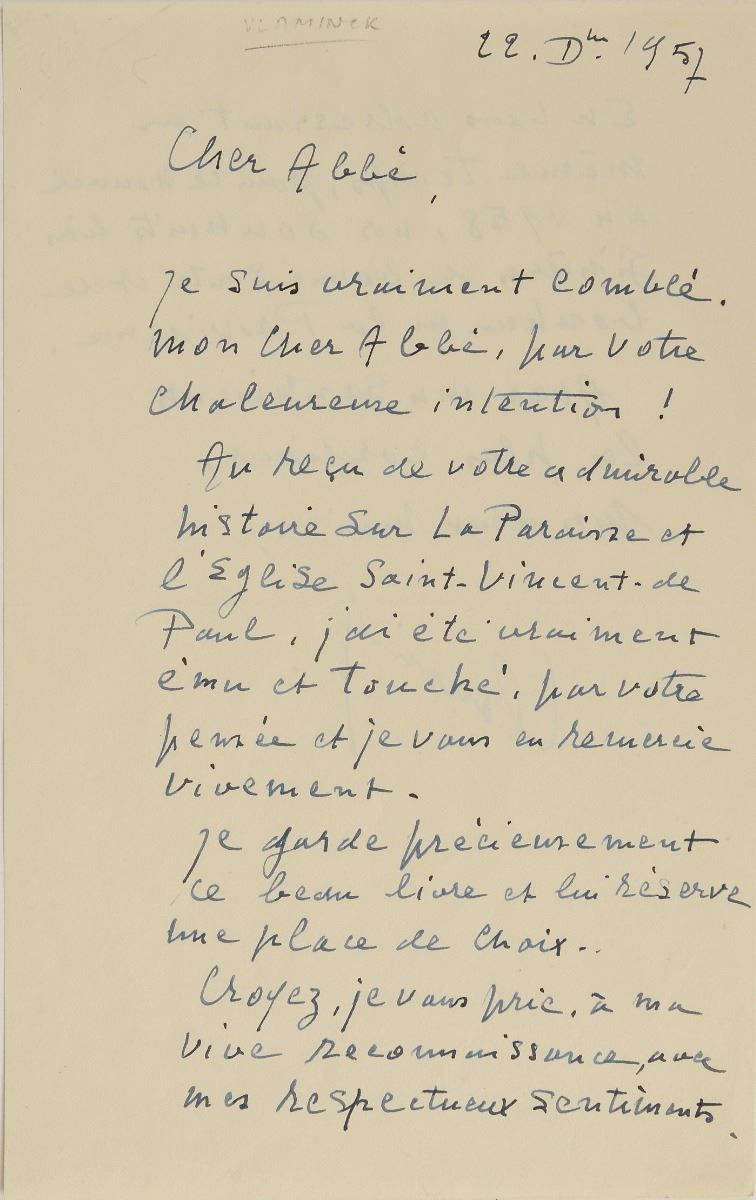 VLAMINCK
22. Dbre 1957
Cher Abbé,
Je suis vraiment comblé.
mon Cher Abbé, par votre
chaleureuse intention !
Au reçu de votre admirable
histoire sur La Paroisse et
l'Eglise Saint-Vincent-de
Paul, j'ai été vraiment
ému et touché, par votre
pensée et je vous en remercie
vivement.
Je garde précieusement
ce beau livre et lui réserve
une place de choix..
Croyez, je vous prie, à ma
vive reconnaissance, avec
mes respectueux sentiments.